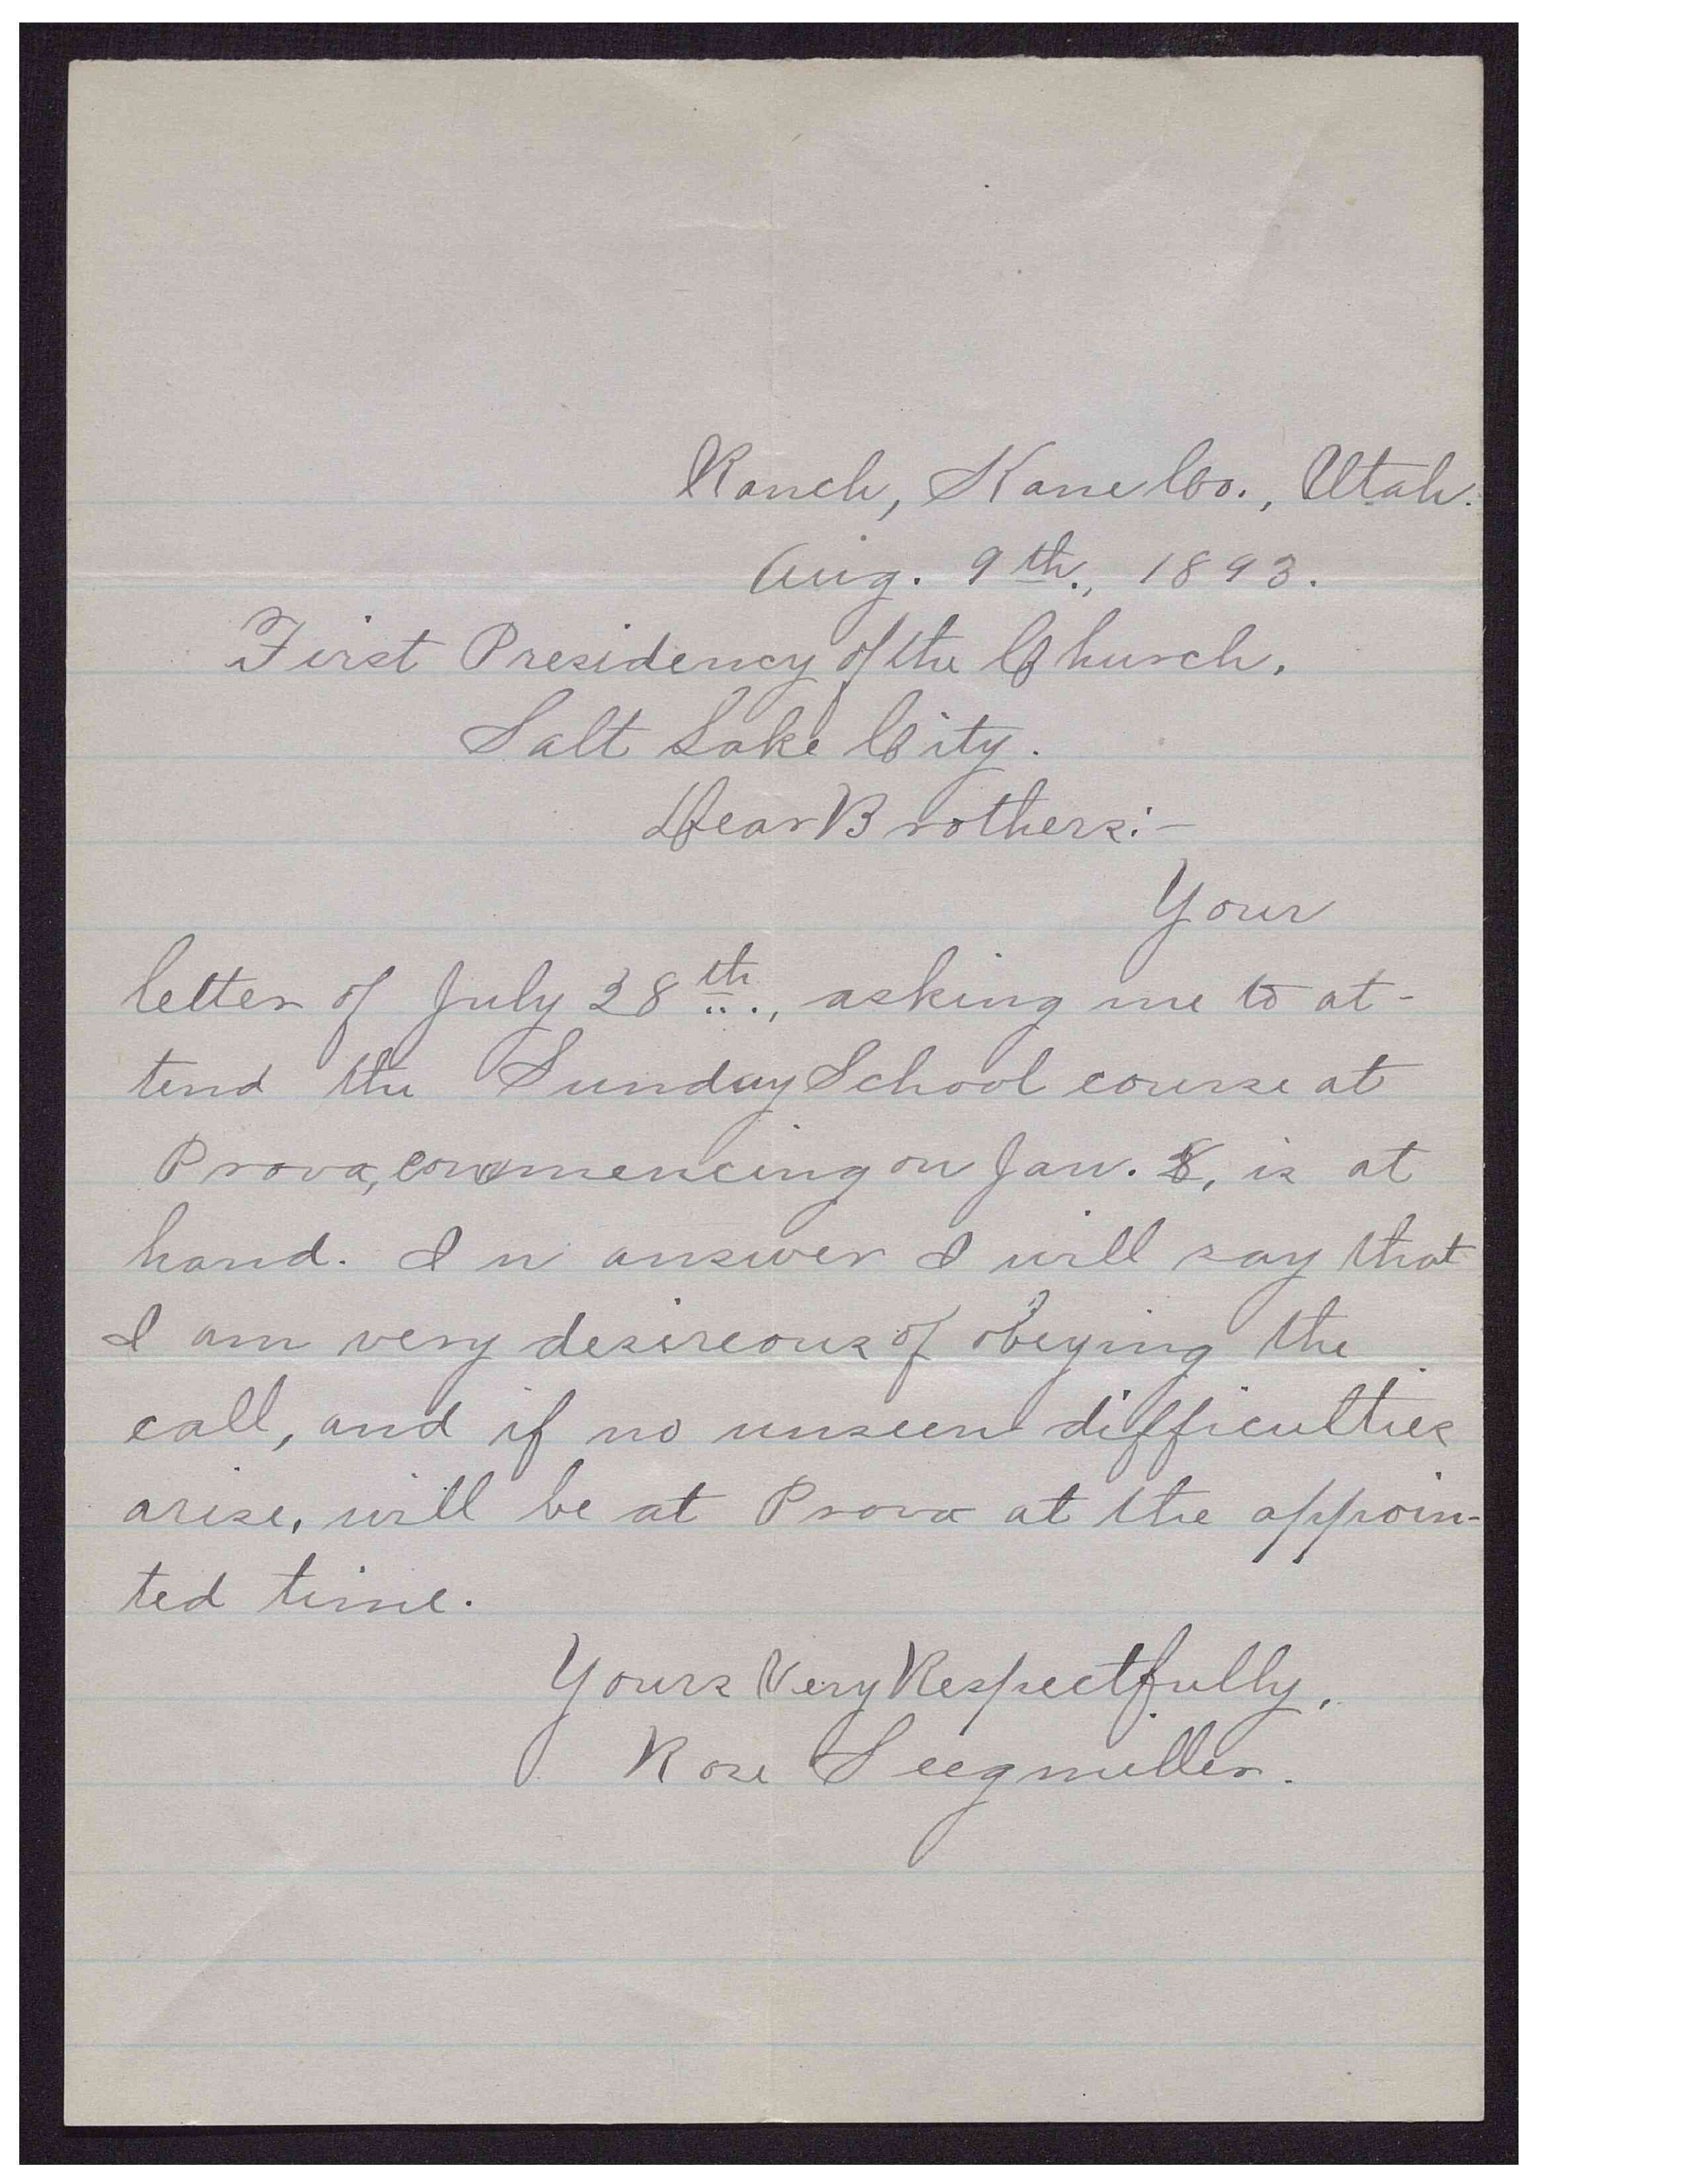 Ranch, Kane Co., Utah.
Aug. 9th., 1893.
First Presidency of the Church,
Salt Lake City.
Dear Brothers:-
Your
letter of July 28th., asking me to at-
tend the Sunday School course at
Provo, commencing on Jan. 8, is at
hand. In answer I will say that
I am very desireous of obeying the
call, and if no unseen difficulties
arise, will be at Provo at the appoin-
ted time.
Yours Very Respectfully,
Rose Seegmiller.